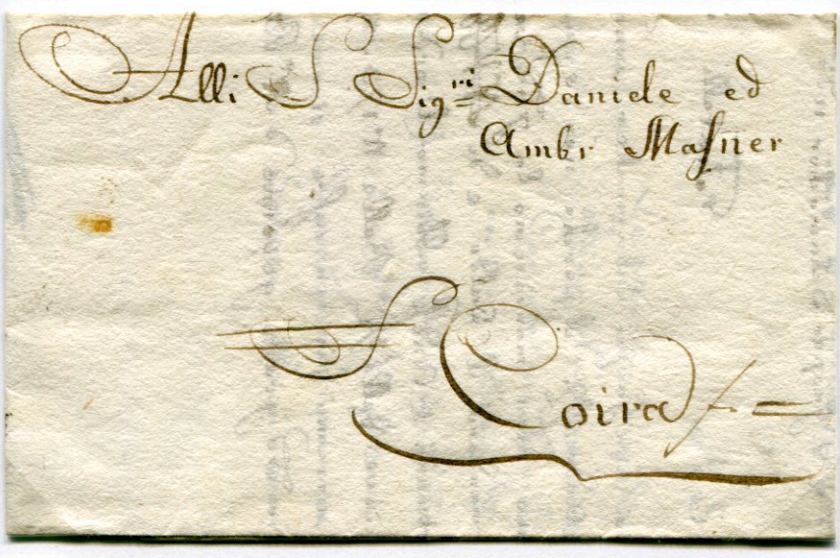 Alli S Sig.ri Daniele ed
Ambr Maſner
Coira